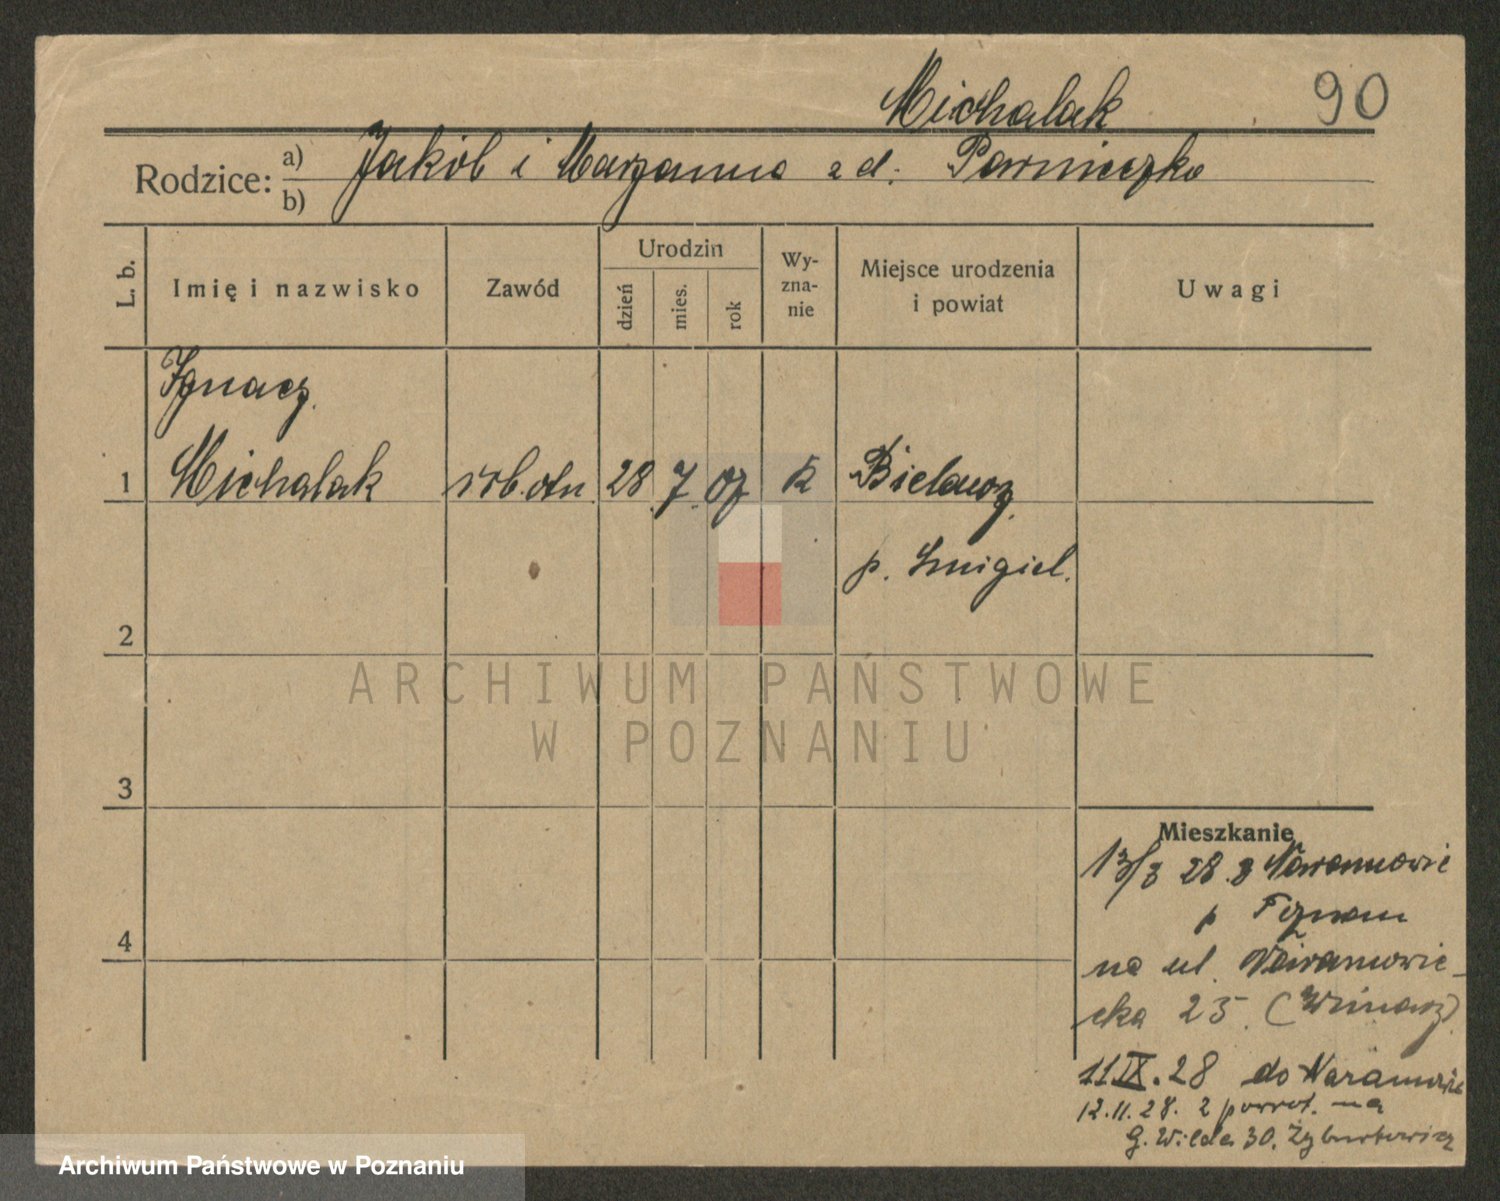 Michalak 90
Rodzice: a) Jakób i Marzanna z d. Parniczko
b)
L. b. Imię i nazwisko Zawód Urodzin dzień mies. rok Wyznanie Miejsce urodzenia i powiat Uwagi
Ignacz
1 Michalak rob. 28 7 07 k Bielawy
p. Smigiel.
2
3
4
Mieszkanie
13/8 28 z Naramowic
p Poznań
na ul. Naramowic-
cka 25. (Winiary)
11 IX. 28 do Naramowic
12.11.28. z powrot. na
G. Wilda 30.
ARCHIWUM PAŃSTWOWE
W POZNANIU
Archiwum Państwowe w Poznaniu